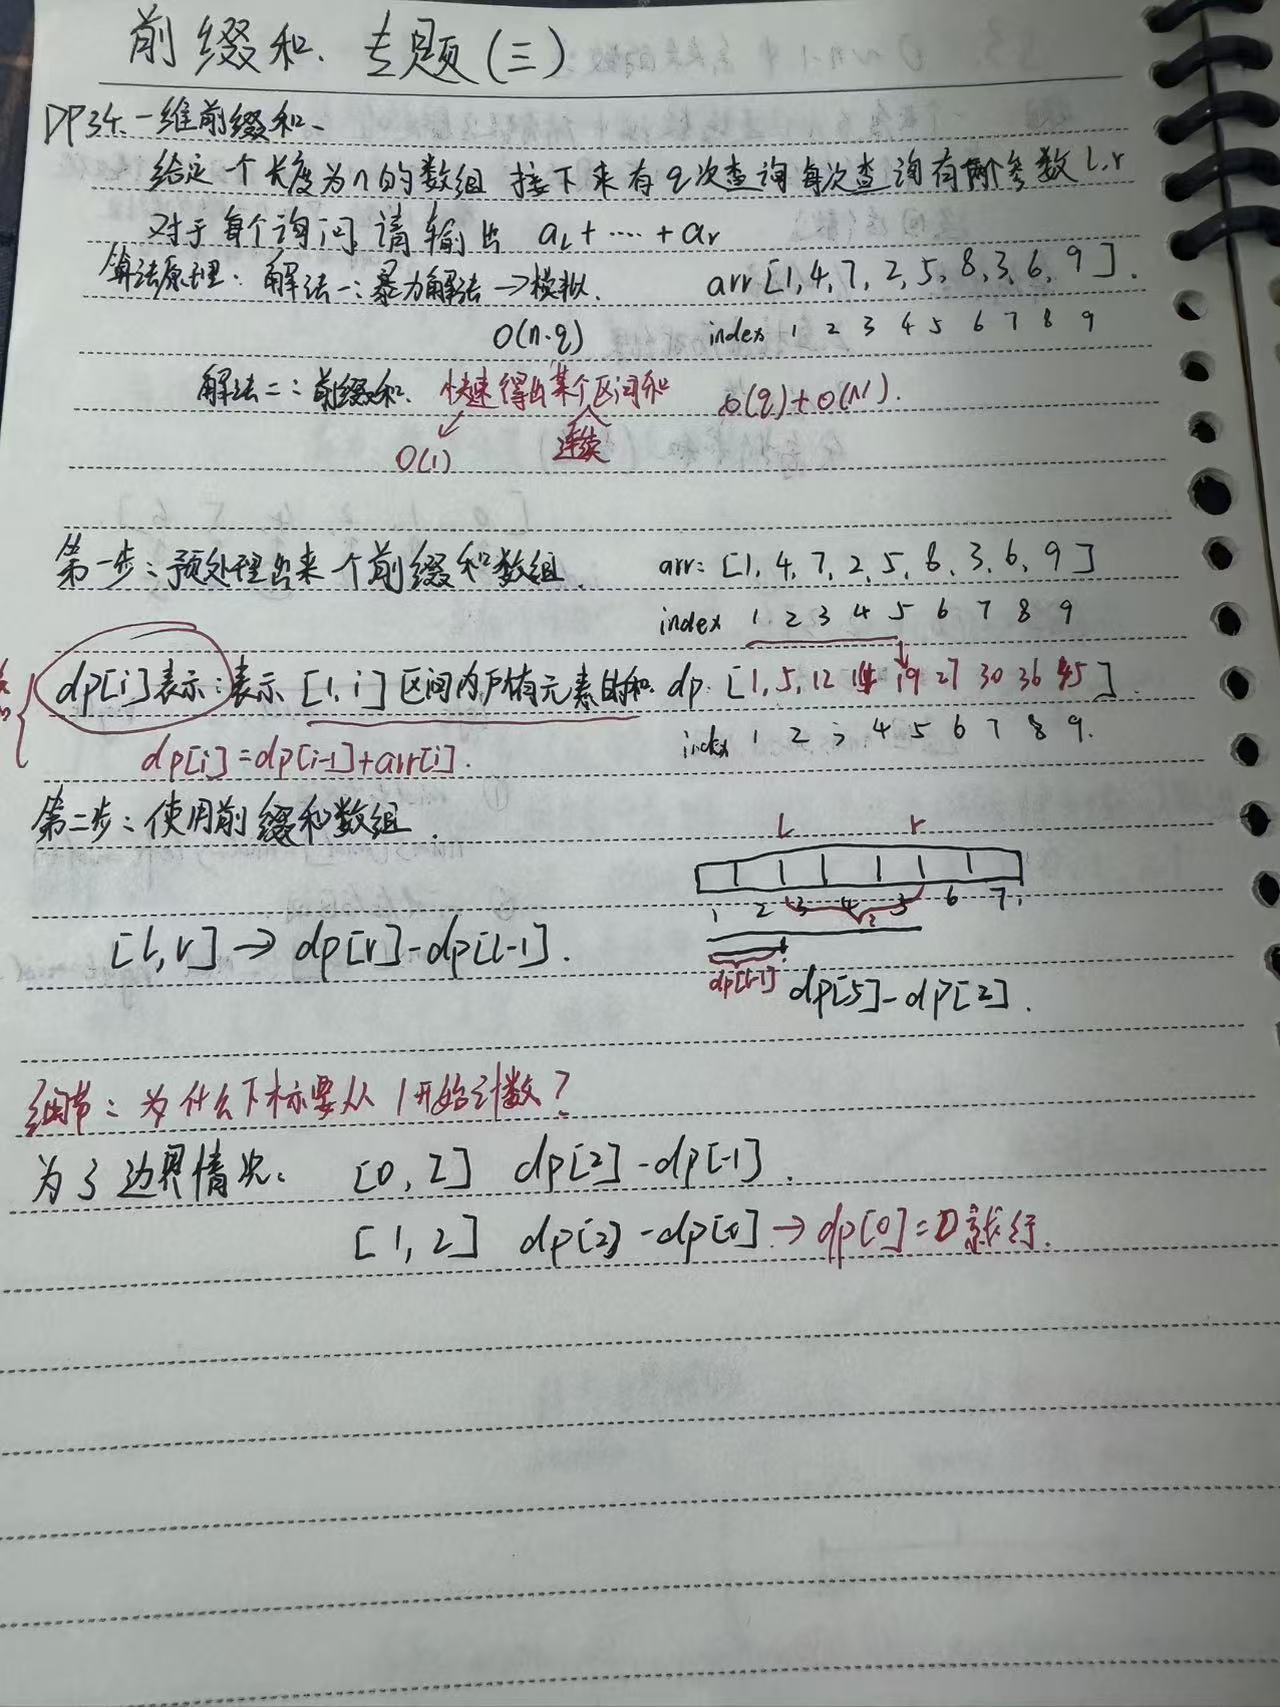 前缀和. 专题(三)
DP34. 一维前缀和.
给定一个长度为n的数组 接下来有q次查询 每次查询有两个参数 l.r
对于每个询问 请输出 al+……+ar
算法原理: 解法一: 暴力解法 → 模拟. arr [1,4,7,2,5,8,3,6,9].
O(n·q) index 1 2 3 4 5 6 7 8 9
解法二: 前缀和. 快速得出某个区间和 O(q)+O(N).
O(1) 连续
第一步: 预处理出来一个前缀和数组. arr: [1,4,7,2,5,8,3,6,9]
index 1 2 3 4 5 6 7 8 9
dp[i]表示: 表示 [1,i] 区间内所有元素的和. dp: [1,5,12 14 19 27 30 36 45].
dp[i]=dp[i-1]+arr[i]. index 1 2 3 4 5 6 7 8 9.
第二步: 使用前缀和数组.
l r
1 2 3 4 5 6 7.
[l,r] → dp[r]-dp[l-1].
dp[l-1] dp[5]-dp[2].
细节: 为什么下标要从1开始计数?
为了边界情况: [0,2] dp[2]-dp[-1].
[1,2] dp[2]-dp[0] → dp[0]=0就行.